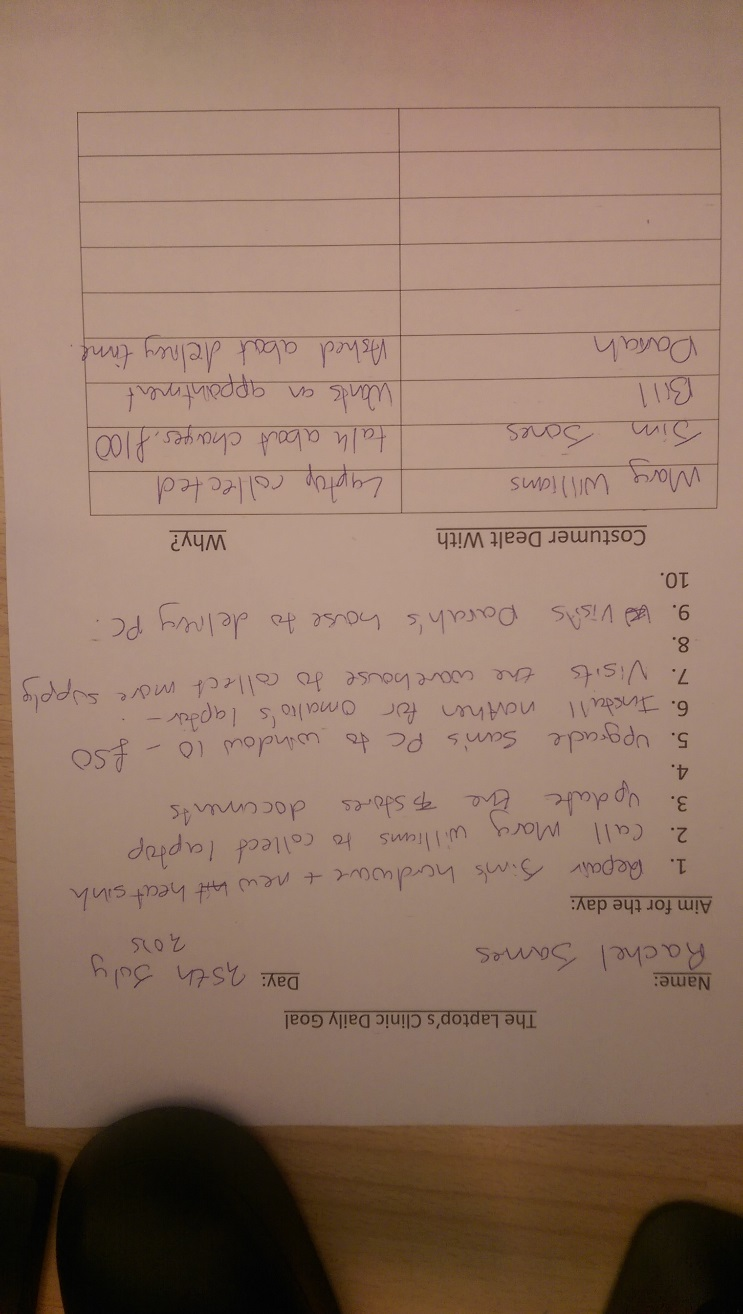 The Laptop's Clinic Daily Goal
Name: Day: 25th July
Rachel James 2025
Aim for the day:
1. Repair Jim's hardware + new heat sink
2. Call Mary Williams to collect laptop
3. Update the stores documents
4.
5. Upgrade Sam's PC to window 10 - £50
6. Install for laptop -
7. Visits the warehouse to collect more supply
8.
9. Visits Darah's house to delivery PC.
10.
Costumer Dealt With Why?
Mary Williams Laptop collected
Jim Jones talk about charges. £100
Bill Wants an appointment
Darah Asked about delivery time.